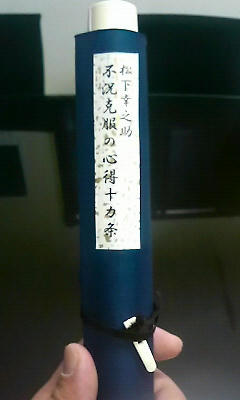 松下幸之助
不況克服の心得十カ条